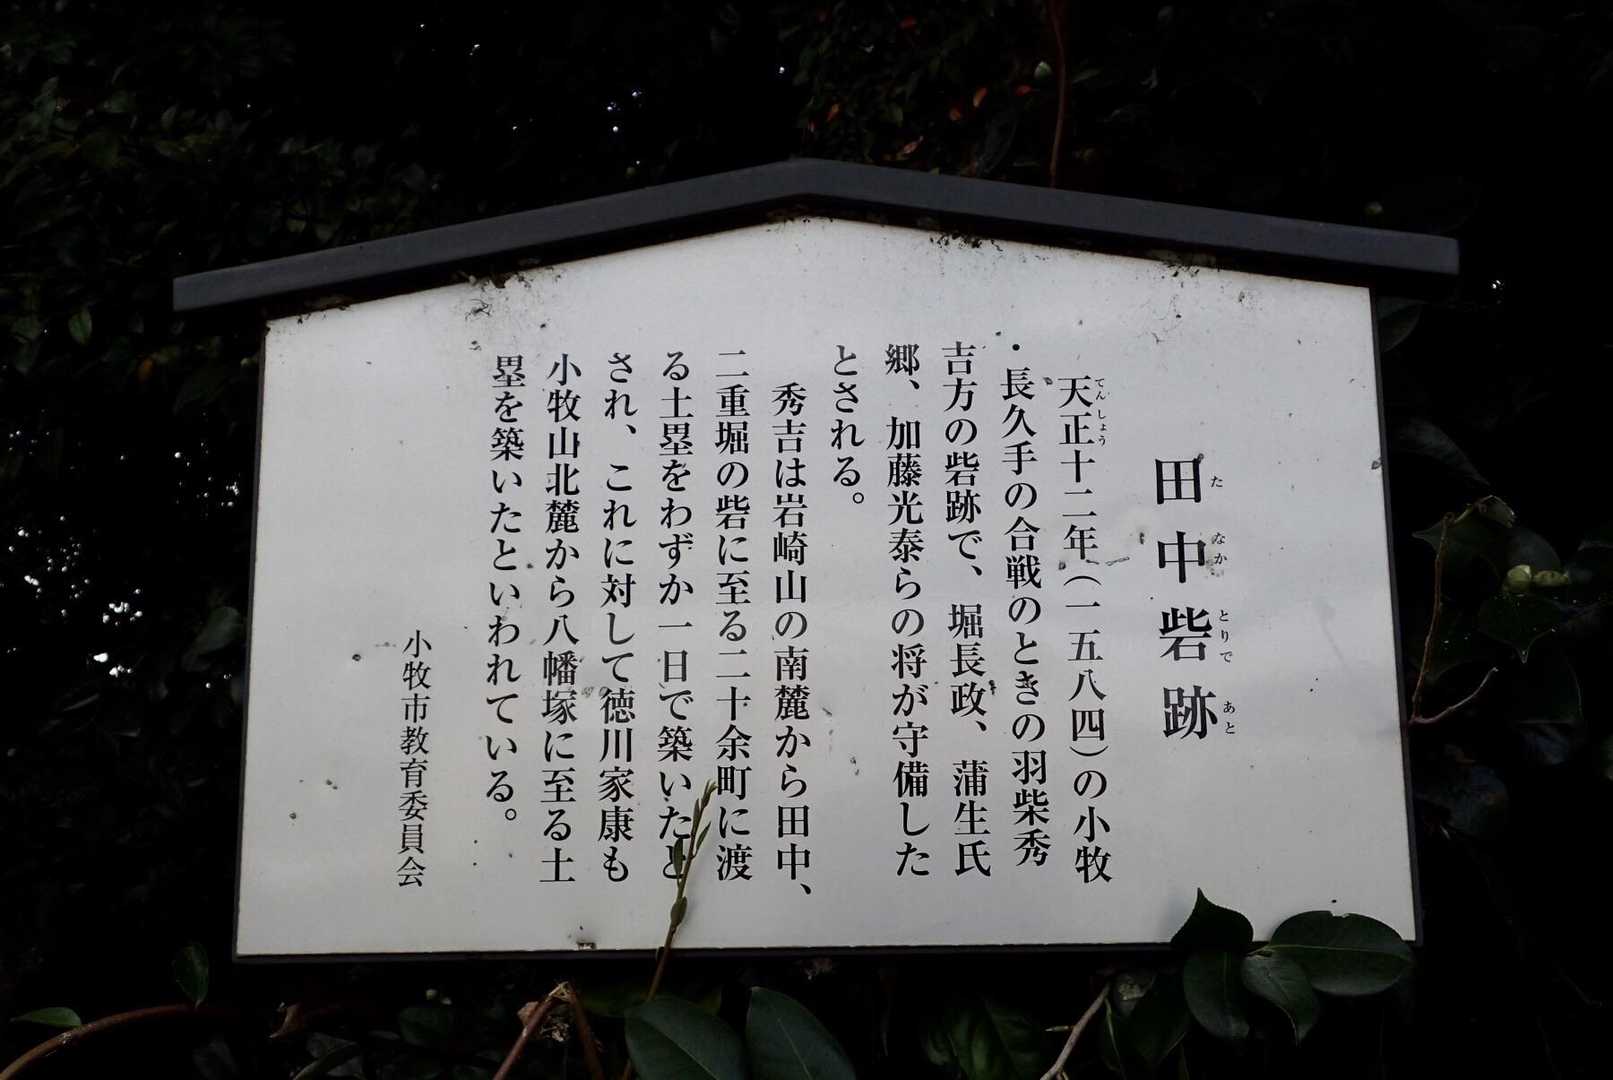 田中砦跡
たなかとりであと
天正十二年（一五八四）の小牧
てんしょう
・長久手の合戦のときの羽柴秀
吉方の砦跡で、堀長政、蒲生氏
郷、加藤光泰らの将が守備した
とされる。
秀吉は岩崎山の南麓から田中、
二重堀の砦に至る二十余町に渡
る土塁をわずか一日で築いたと
され、これに対して徳川家康も
小牧山北麓から八幡塚に至る土
塁を築いたといわれている。
小牧市教育委員会